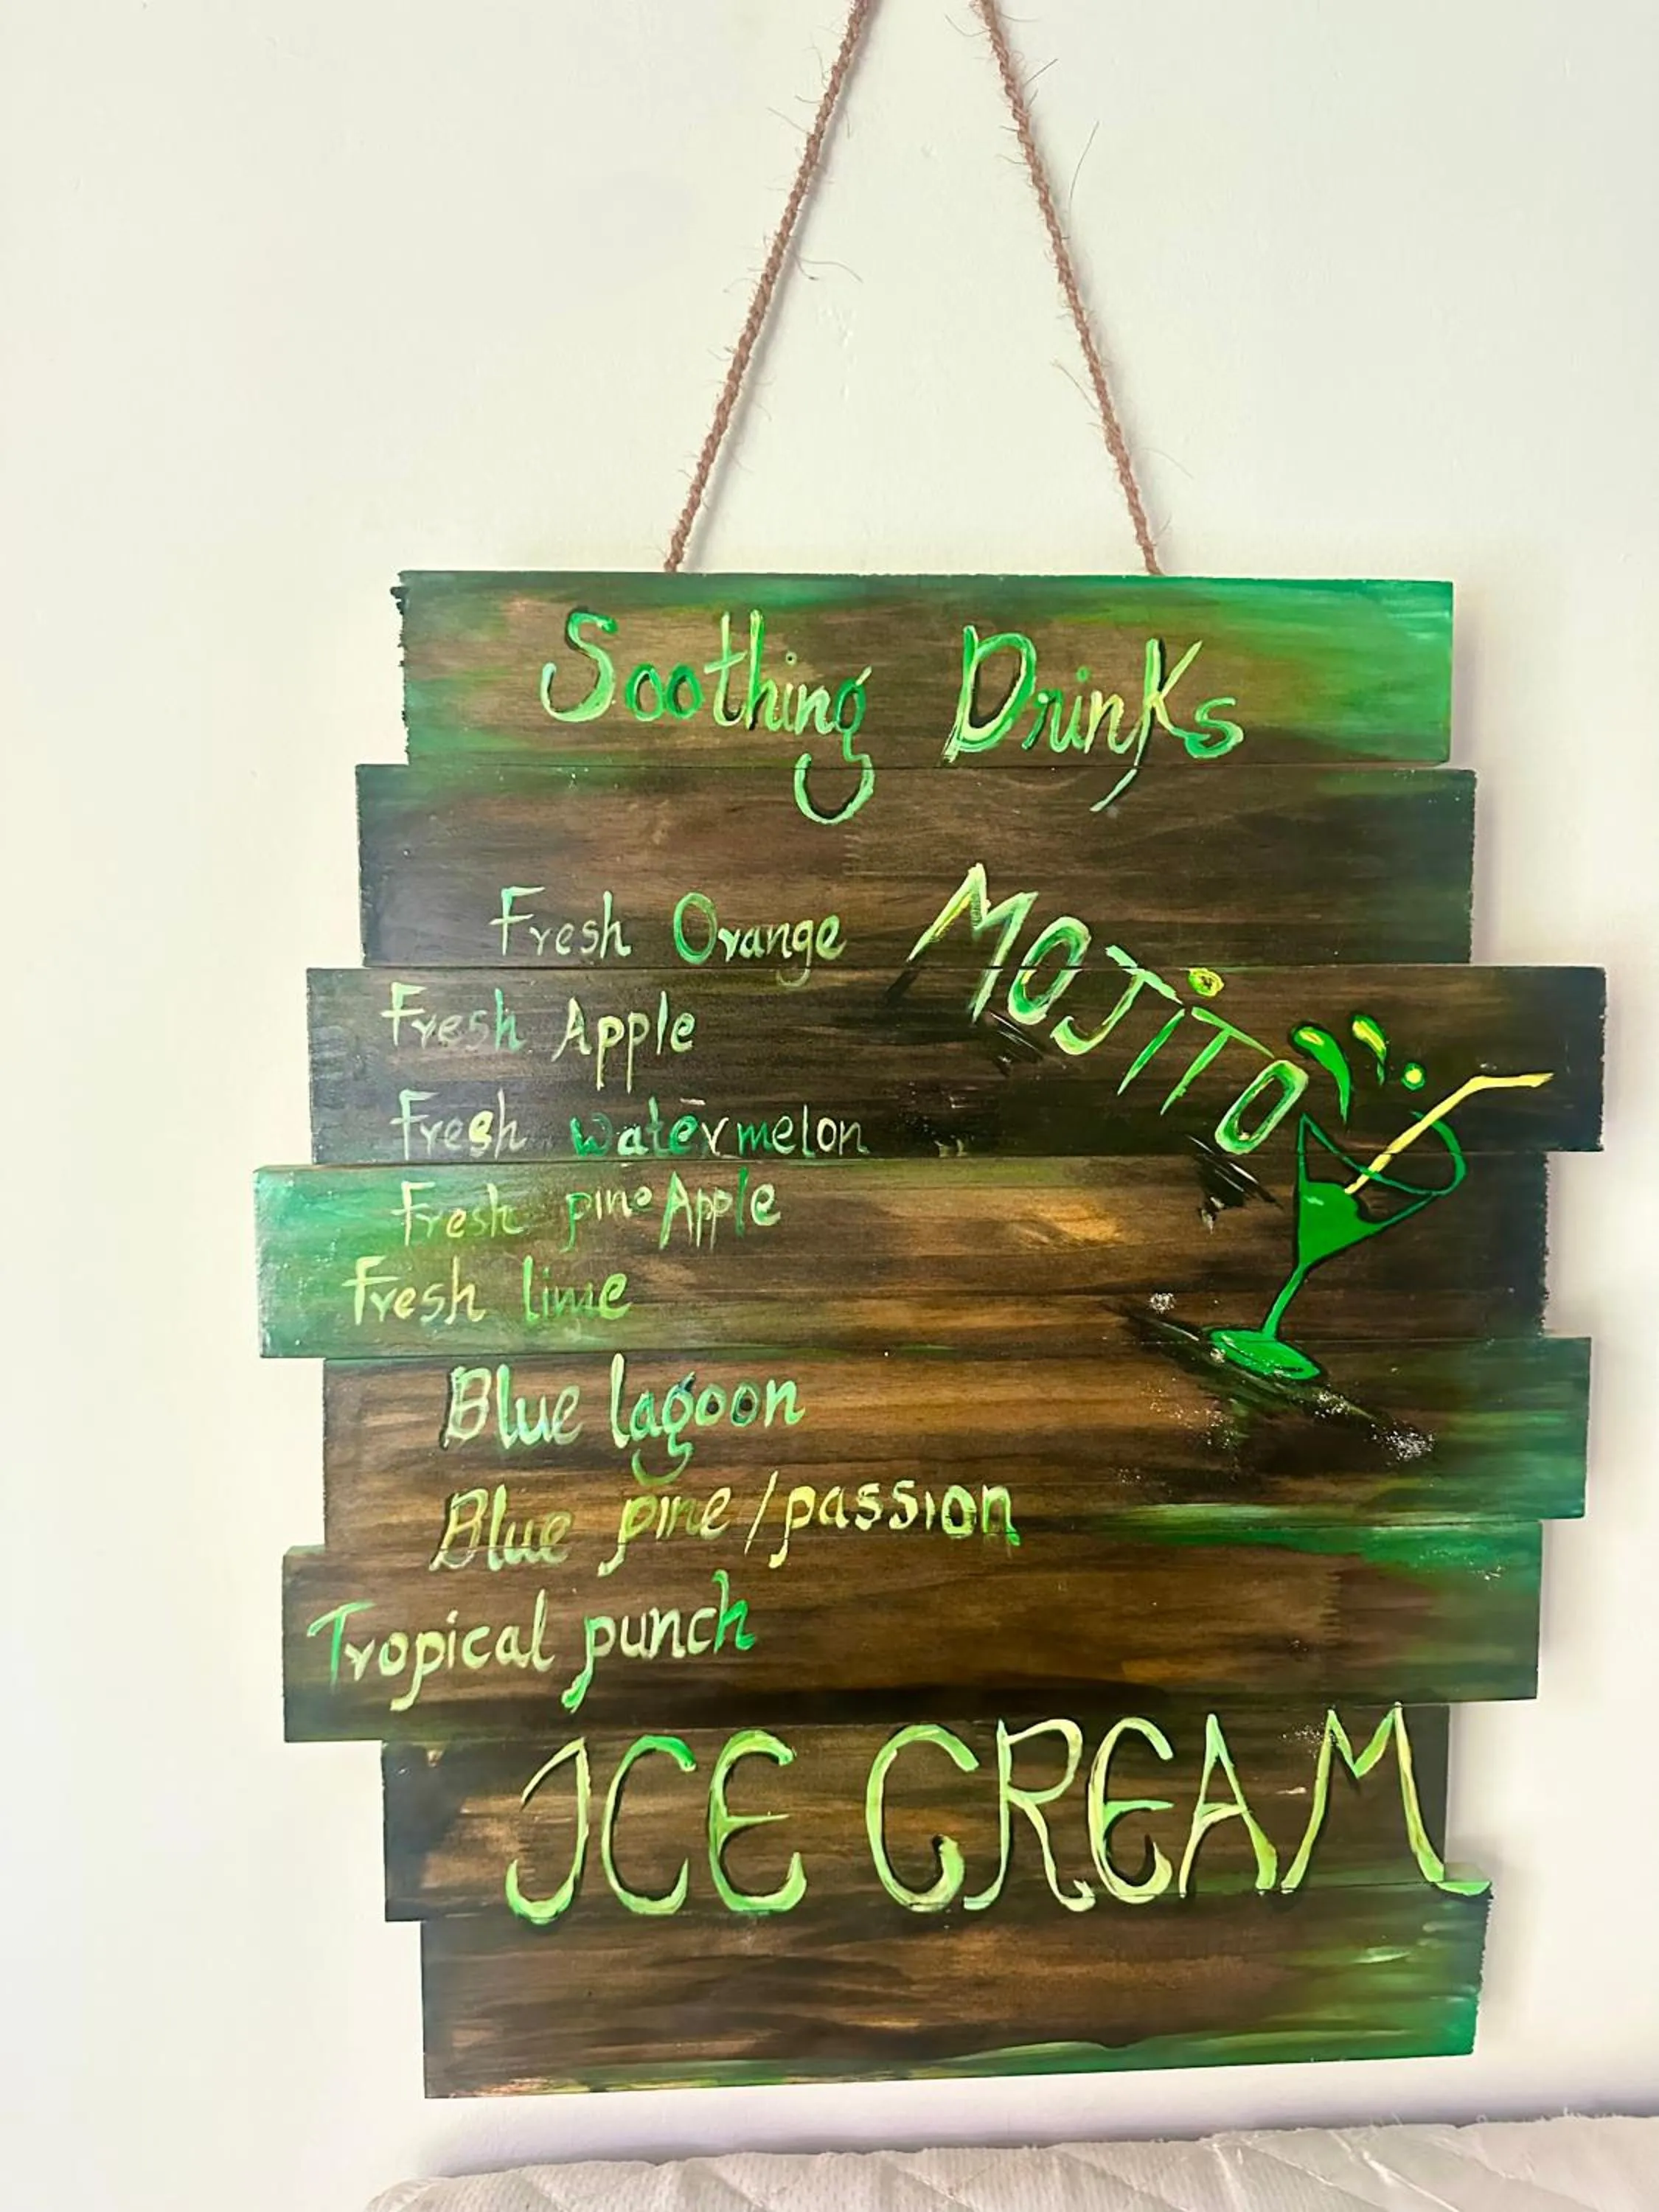 Soothing Drinks
Fresh Orange
MOJiTO
Fresh Apple
Fresh watermelon
Fresh pineApple
Fresh lime
Blue lagoon
Blue pine/passion
Tropical punch
ICE CREAM